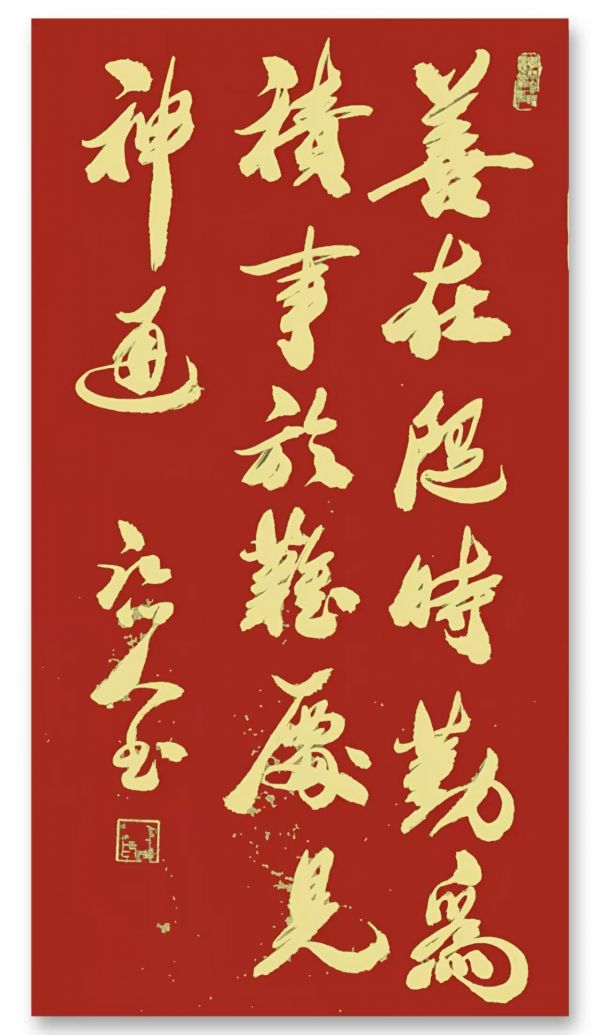 善在隨時勤爲
積事於難處見
神通